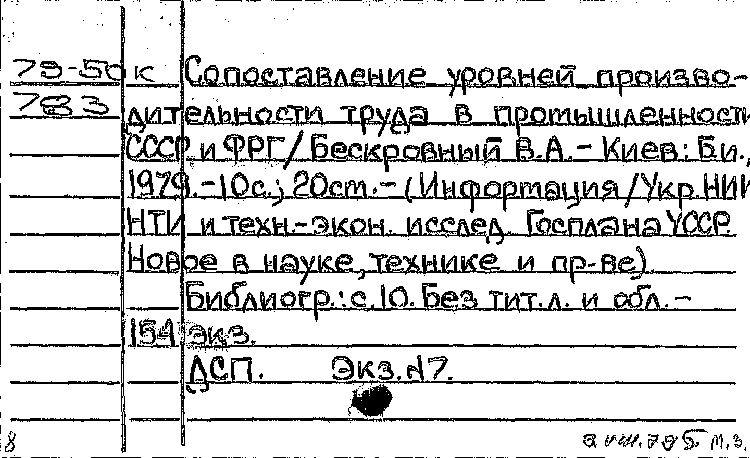 79-50 к Сопоставление уровней произво-
783 дительности труда в промышленности
СССР и ФРГ / Бескровный В.А. - Киев: Б.и.,
1979. - 10с.; 20см. - (Информация / Укр.НИИ
НТИ и техн.-экон. исслед. Госплана УССР.
Новое в науке, технике и пр-ве).
Библиогр.: с.10. Без тит.л. и обл. -
154 экз.
ДСП. Экз.№7.
8